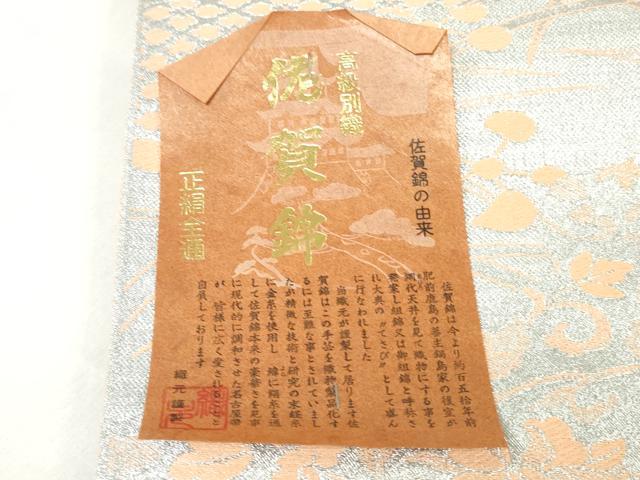 高級別織
佐賀錦
正絹全通
佐賀錦の由来
佐賀錦は今より約百五拾年前
肥前鹿島の藩主鍋島家の後室が
網代天井を見て織物にする事を
発案し組錦又は御組錦と呼称さ
れ大奥の〝てさび〟として盛ん
に行なわれました
当織元が謹製して居ります佐
賀錦はこの手芸を織物製品化す
るには至難な事とされていまし
たが精微な技術と研究の末経糸
に金糸を使用し緯に絹糸を通
して佐賀錦本来の豪華さを見事
に現代的に調和させた名古屋帯
が皆様に広く愛されることと
自負しております
織元謹製